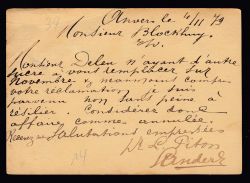 34
Anvers le 4/11 79
Monsieur Blockhuys
E/V.
Monsieur Deleu n'ayant d'autre
sucre à vous remplacer sur
Novembre & maintenant compris
votre réclamation je suis
parvenu non sans peine à
résilier. Considérez donc
affaire comme annulée.
Recevez mes salutations empressées
L. Piton
24